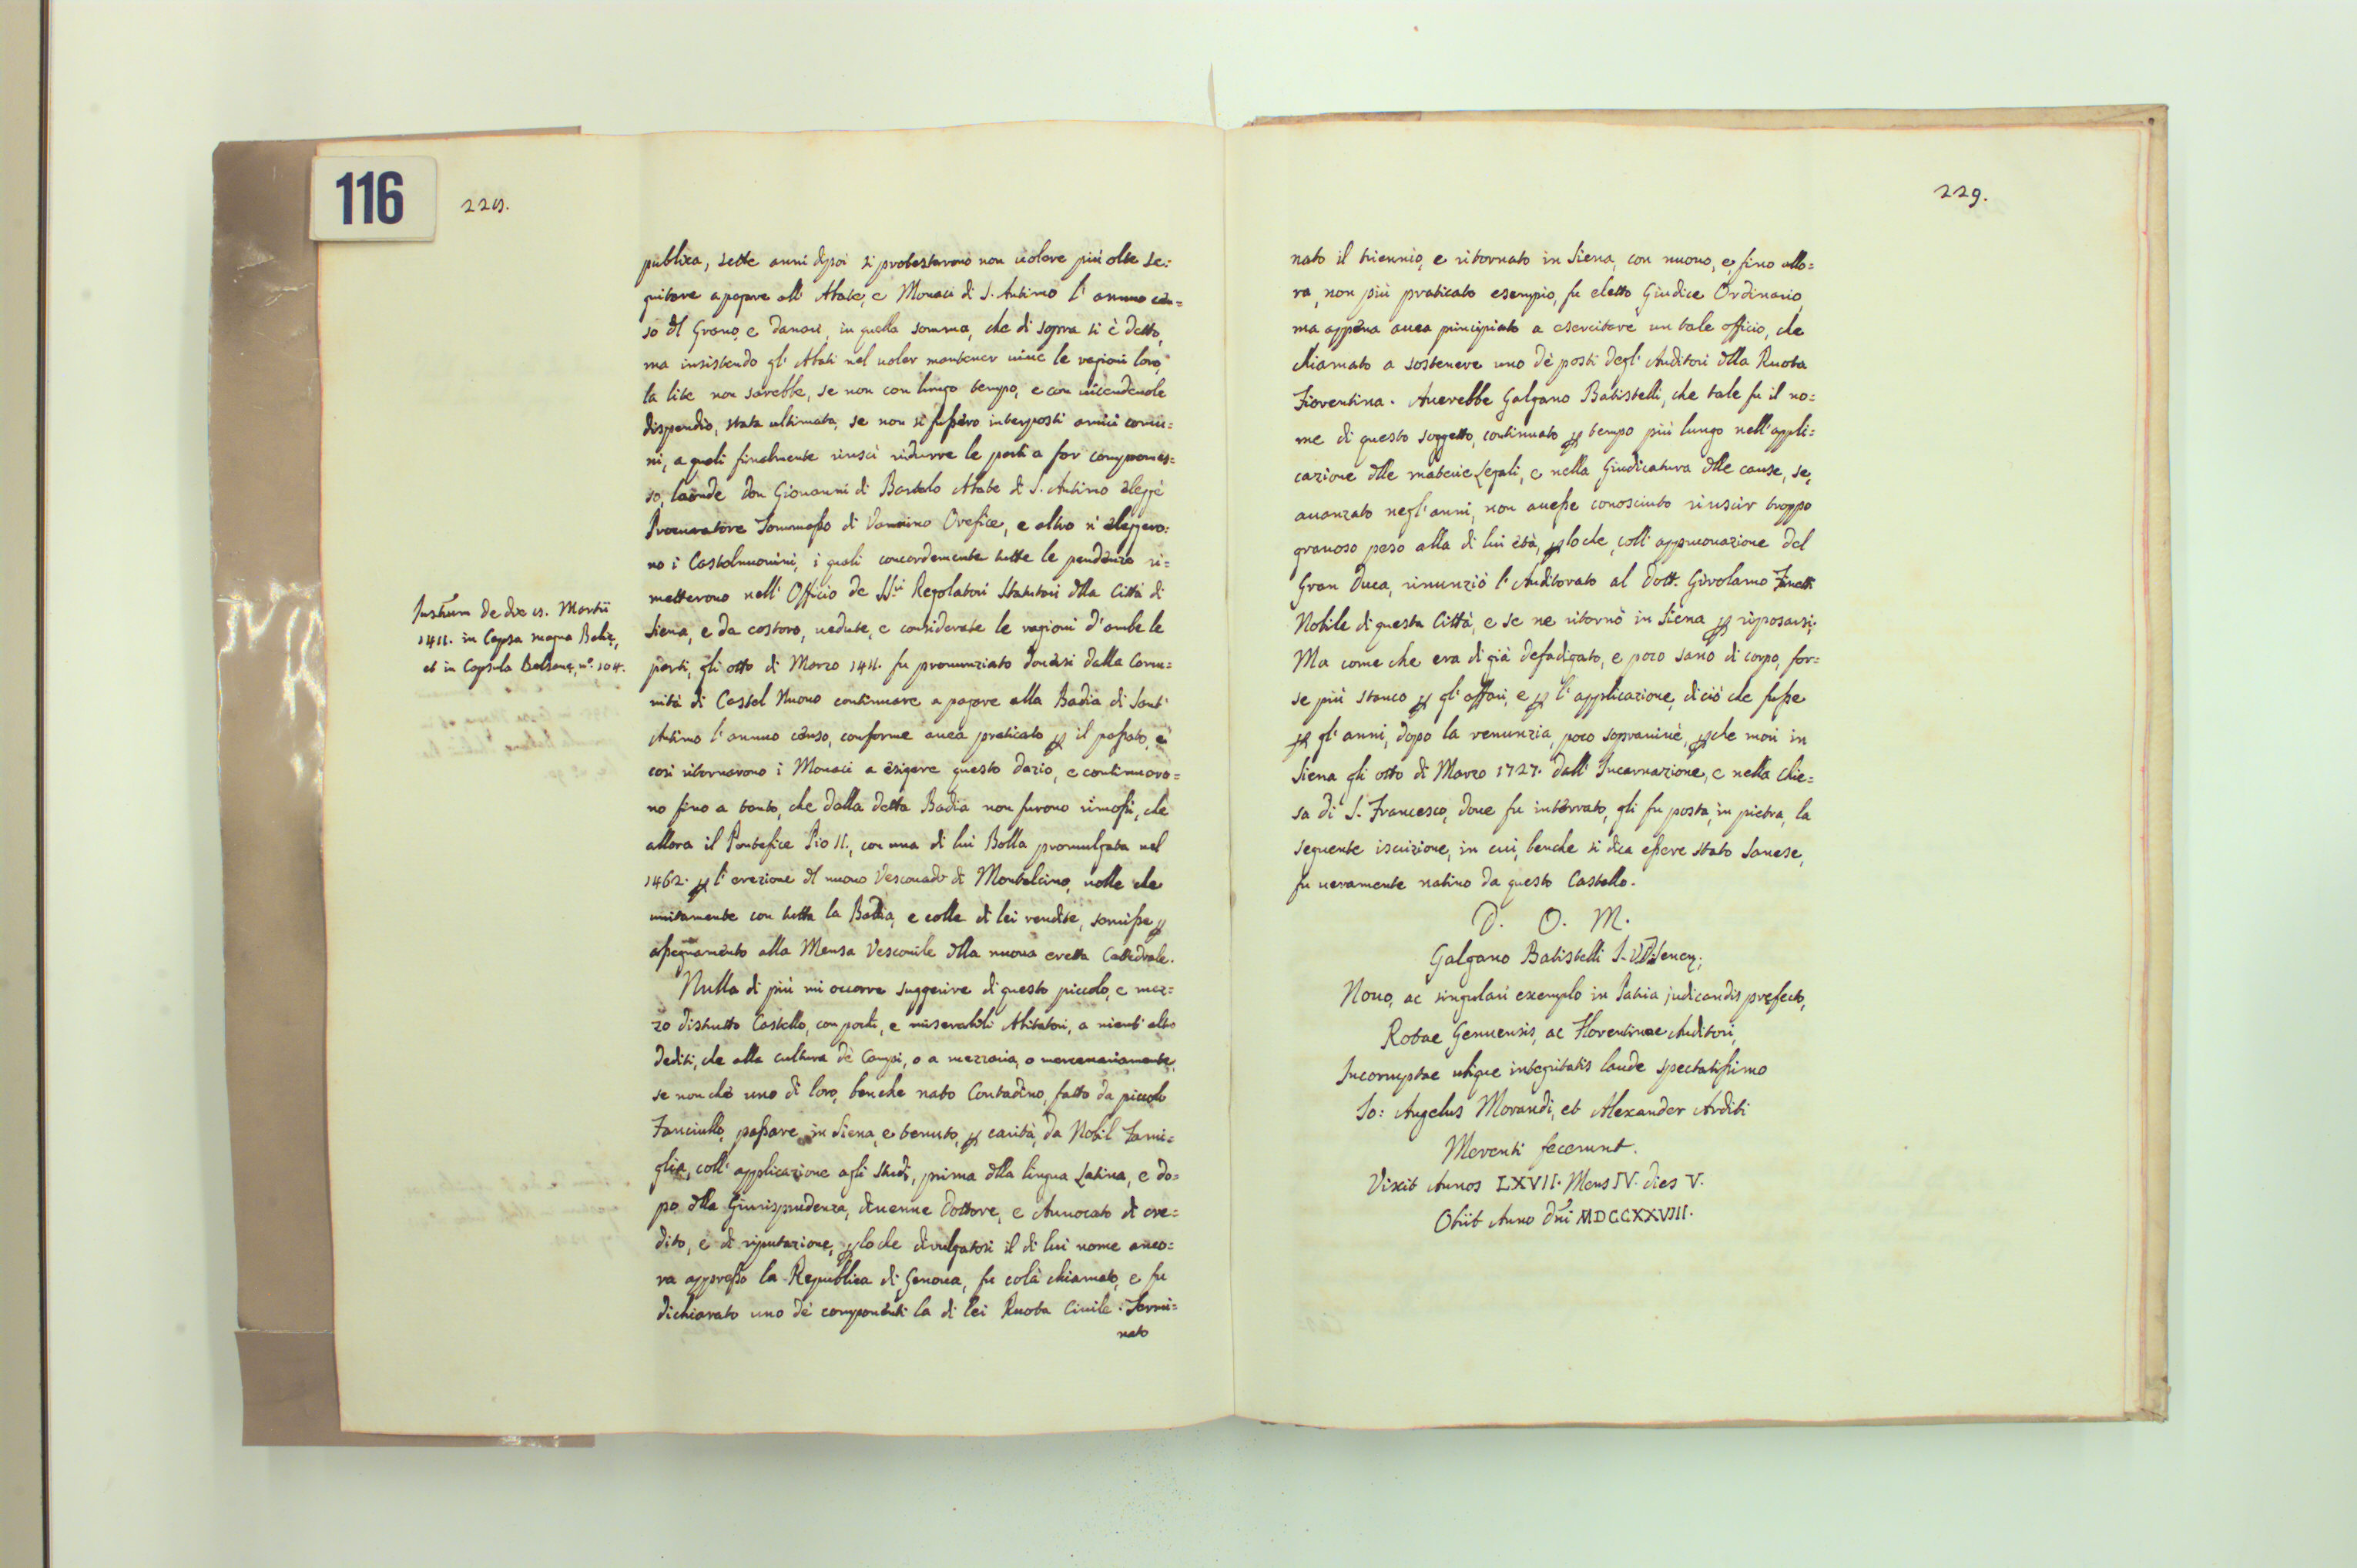 116
228.
publica, sette anni dipoi si protestarono non uolere più oltre se=
guitare a pagare all' Abate, e Monaci di S. Antimo l' annuo cen=
so dl Grano, e danari, in quella somma, che di sopra si è detto,
ma insistendo gl' Abati nel uoler mantener uiue le ragioni loro,
la lite non sarebbe, se non con lungo tempo, e con uicendeuole
dispendio, stata ultimata, se non si fussero interposti amici comu=
ni, a quali finalmente riuscì ridurre le parti a far compromes=
so, laonde Don Giouanni di Bartalo Abate di S. Antimo elegge
Procuratore Tommasso di Vannino Orefice, e altro n' eleggero=
no i Castelnuouini, i quali concordemente tutte le pendenze ri=
metterono nell' Officio de SS.ri Regolatori Statutarii dlla Città di
Siena, e da costoro, uedute, e considerate le ragioni d' ambe le
parti, gli otto di Marzo 1411. fu pronunziato douersi dalla Comu=
nità di Castel Nuouo continuare a pagare alla Badia di Sant'
Antimo l' annuo censo, conforme auea praticato p il passato, e
così ritornarono i Monaci a esigere questo dazio, e continuaro=
no fino a tanto, che dalla detta Badia non furono rimossi, che
allora il Pontefice Pio II., con una di lui Bolla promulgata nel
1462. p l' erezione dl nuouo Vescouado di Montalcino, uolle che
unitamente con tutta la Badia, e colle di lei rendite, seruisse p
assegnamento alla Mensa Vescouile dlla nuoua eretta Cattedrale.
Nulla di più mi occorre suggerire di questo piccolo, e mez=
zo distrutto Castello, con pochi, e miserabili Abitatori, a nient' altro
dediti, che alla cultura de' Campi, o a mezzaria, o mercenariamente,
se non che uno di loro, benche nato Contadino, fatto da piccolo
Fanciullo, passare in Siena, e tenuto, p carità, da Nobil Fami=
glia, coll' applicazione agli Studi, prima dlla lingua Latina, e do=
po dlla Giurisprudenza, diuenne Dottore, e Auuocato di cre=
dito, e di riputazione, ploche diuulgatosi il di lui nome anco=
ra appresso la Republica di Genoua, fu colà chiamato, e fu
dichiarato uno de' componenti la di lei Ruota Ciuile. Termi=
nato
Instrum de die 8. Martii
1411. in Capsa magna Balie,
et in Capsula Balzane, n.º 104.
229.
nato il triennio, e ritornato in Siena, con nuouo, e, fino allo=
ra, non più praticato esempio, fu eletto Giudice Ordinario,
ma appena auea principiato a esercitare un tale officio, che
chiamato a sostenere uno de' posti degl' Auditori dlla Ruota
Fiorentina. Auerebbe Galgano Batistelli, che tale fu il no=
me di questo soggetto, continuato p tempo più lungo nell' appli=
cazione dlle materie Legali, e nella Giudicatura dlle cause, se,
auanzato negl' anni, non auesse conosciuto riuscir troppo
grauoso peso alla di lui età, ploche, coll' approuazione del
Gran Duca, rinunziò l' Auditorato al Dott. Girolamo Finetti
Nobile di questa Città, e se ne ritornò in Siena p riposarsi;
Ma come che era di già defadigato, e poco sano di corpo, for=
se più stanco p gl' affari, e p l' applicazione, di ciò che fusse
p gl' anni, dopo la renunzia, poco soprauiuè, pche morì in
Siena gli otto di Marzo 1727. dall' Incarnazione, e nella Chie=
sa di S. Francesco, doue fu interrato, gli fu posta, in pietra, la
seguente iscrizione, in cui, benche si dica essere stato Sanese,
fu ueramente natiuo da questo Castello.
D. O. M.
Galgano Batistelli J. V. D. Senen;
Nouo, ac singulari exemplo in Patria judicandis prefecto,
Rotae Genuensis, ac Florentinae Auditori,
Incorruptae utique integritatis laude spectatissimo
Jo: Angelus Morandi, et Alexander Arditi
Merenti fecerunt.
Vixit Annos LXVII. Mens IV. dies V.
Obiit Anno Dni MDCCXXVIII.